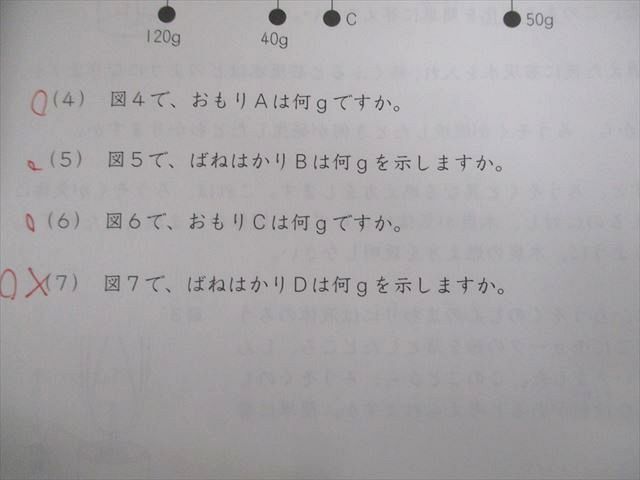 120g 40g C 50g
(4) 図4で、おもりAは何gですか。
(5) 図5で、ばねはかりBは何gを示しますか。
(6) 図6で、おもりCは何gですか。
(7) 図7で、ばねはかりDは何gを示しますか。